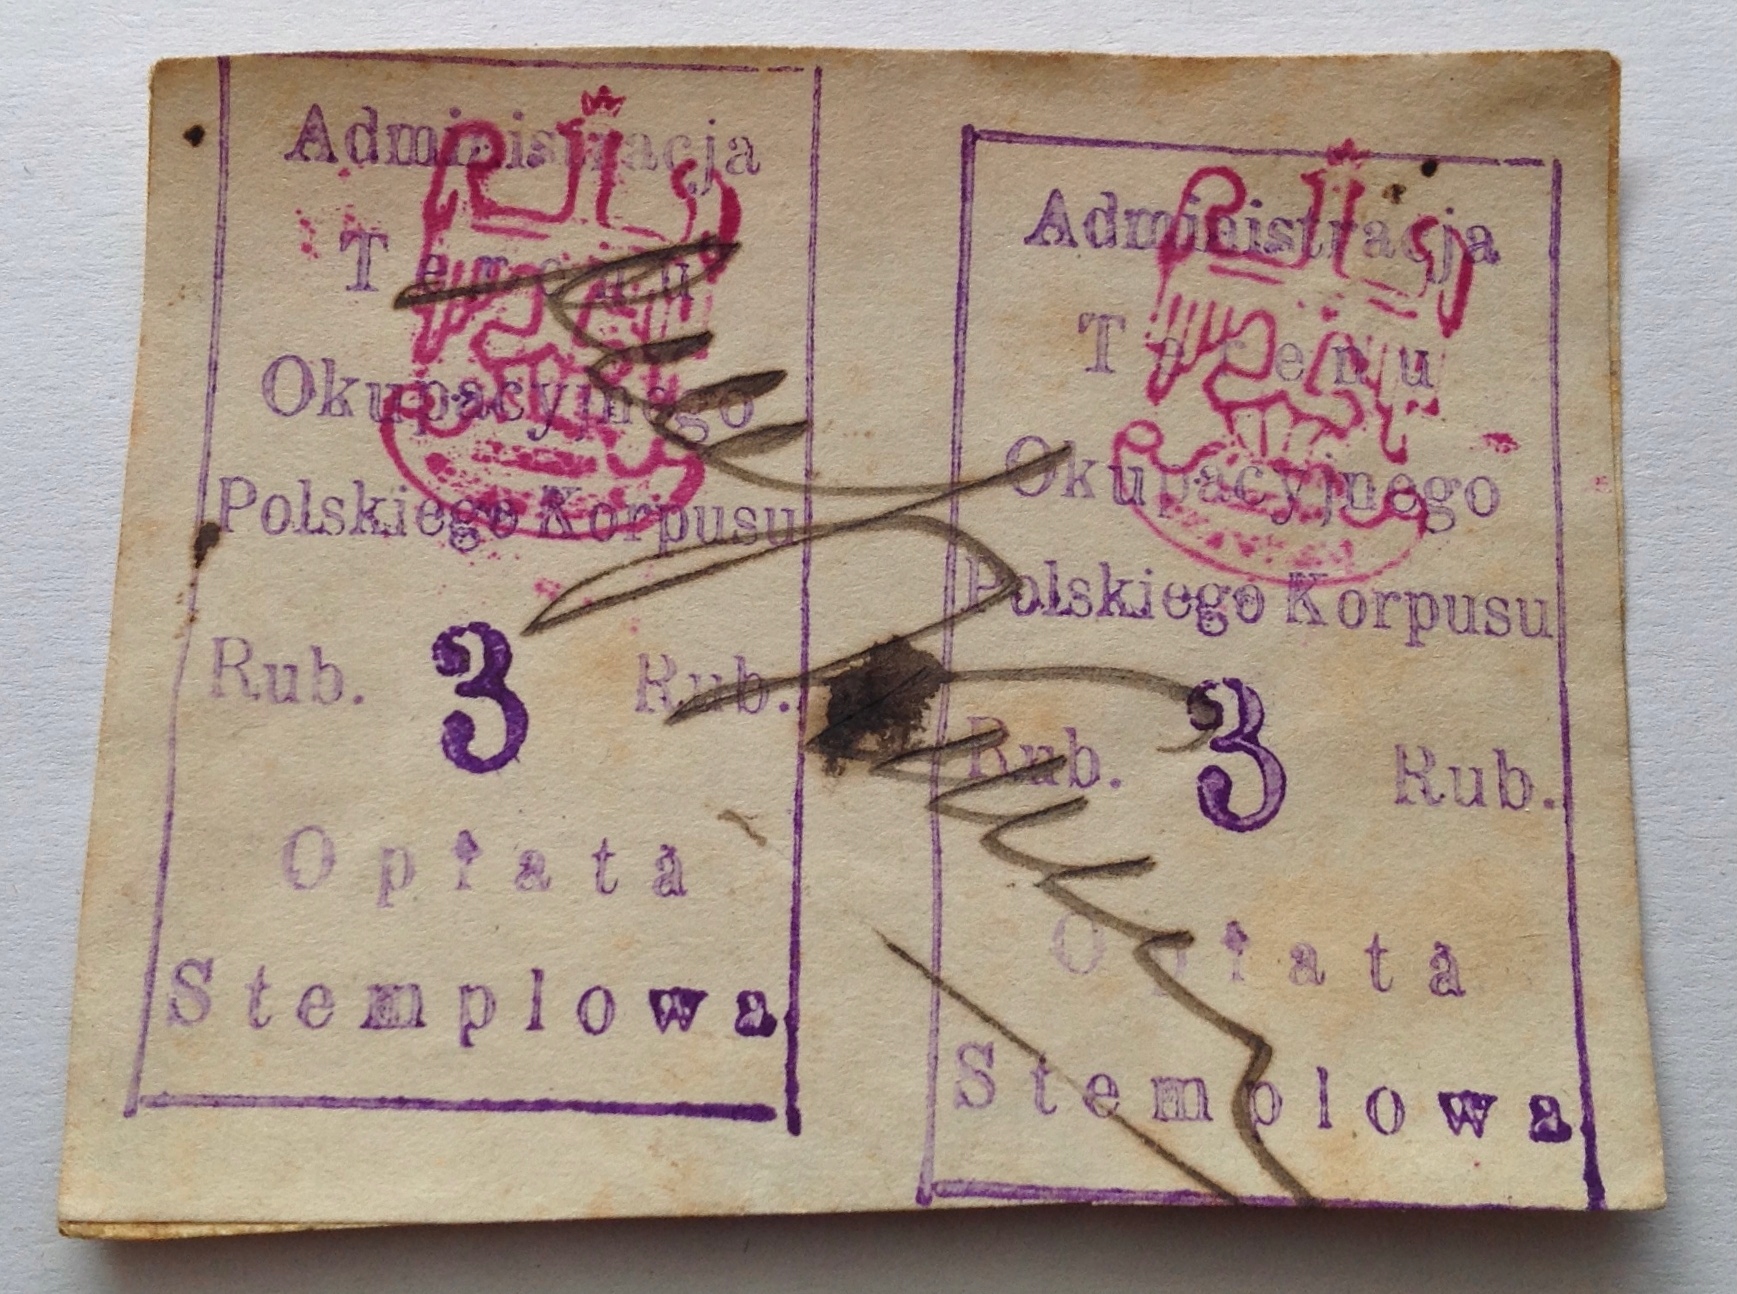 Administracja
Terenu
Okupacyjnego
Polskiego Korpusu
Rub. 3 Rub.
Opłata
Stemplowa
Administracja
Terenu
Okupacyjnego
Polskiego Korpusu
Rub. 3 Rub.
Opłata
Stemplowa